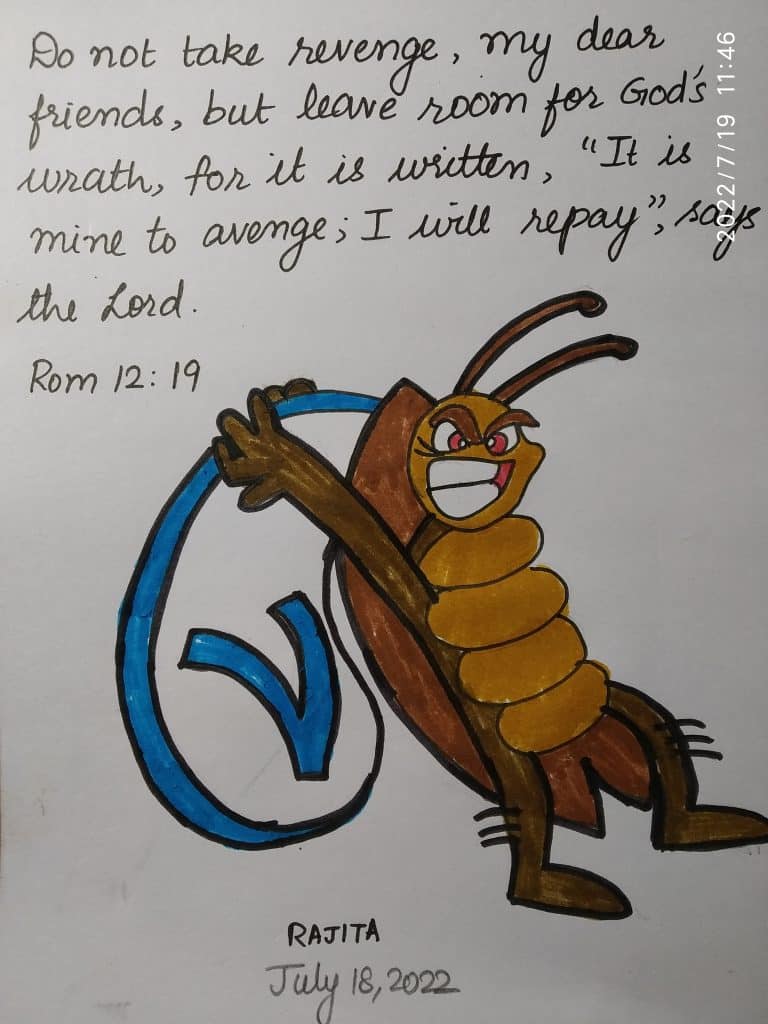 Do not take revenge, my dear
friends, but leave room for God's
wrath, for it is written, "It is
mine to avenge; I will repay", says
the Lord.
Rom 12:19
2022/7/19 11:46
V
RAJITA
July 18, 2022